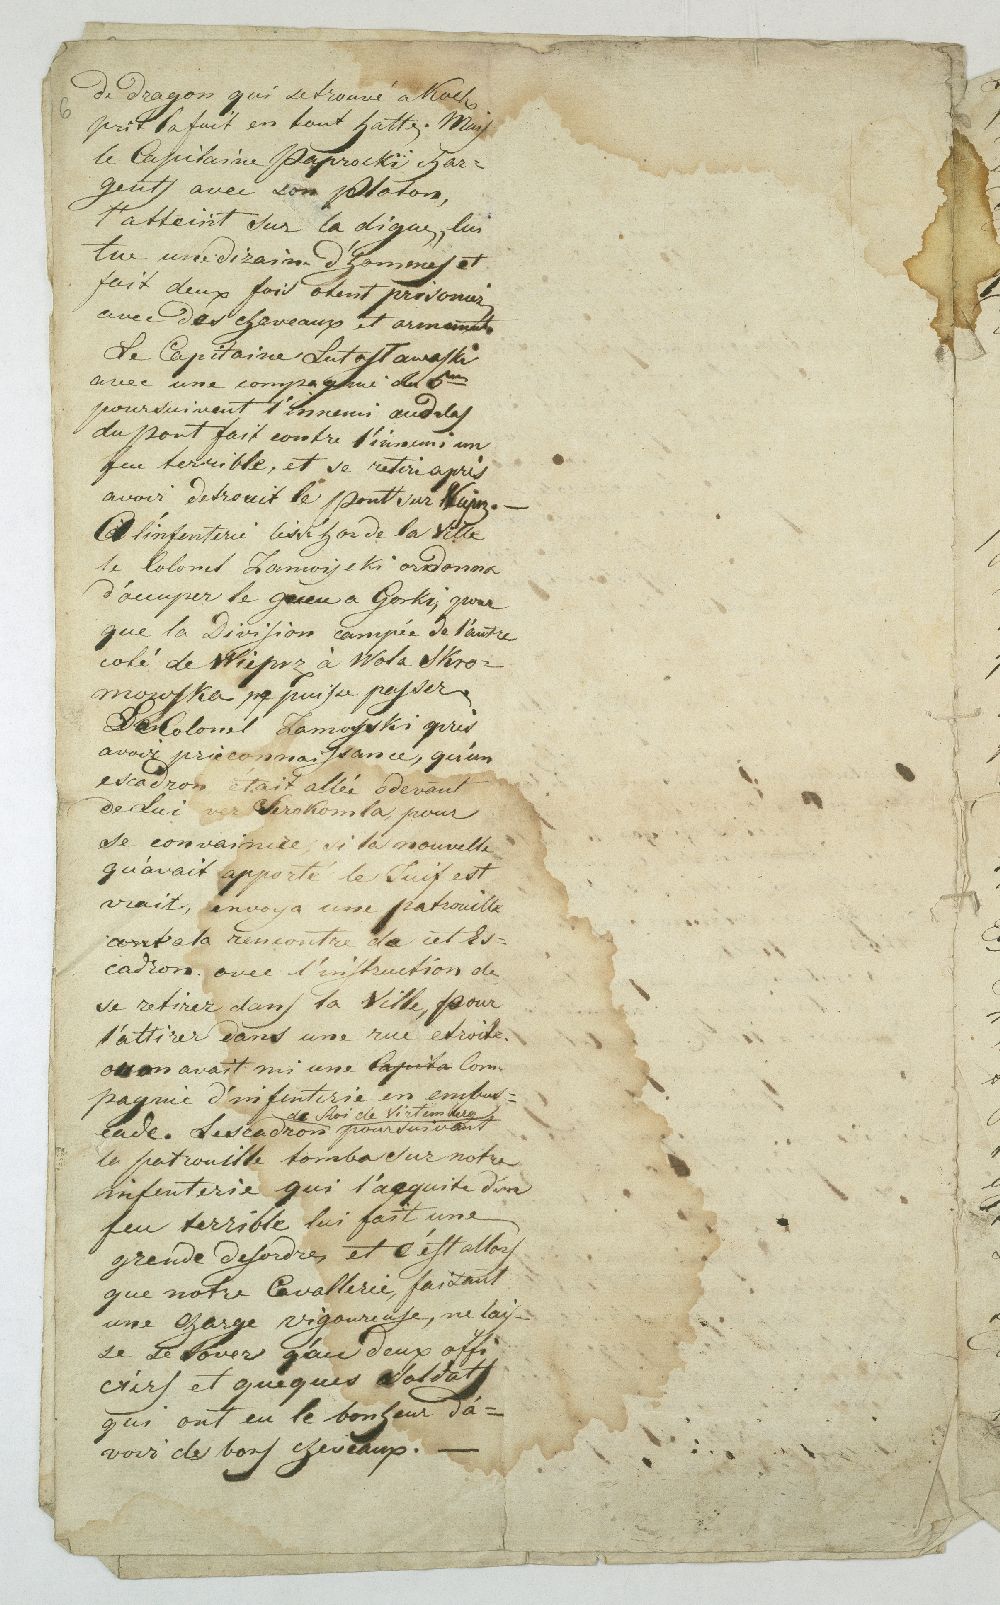 6
de dragon qui se trouvé a Kock
prit la fuit en tout hatte. Mais
le Capitaine Paprocki char=
gents avec son platon,
l'atteint sur la digue, lui
tue une dizaine d'hommes et
fait deux fois otent prisonier
avec des cheveaux et armements
Le Capitaine Lutosławski
avec une compagnie du 5me
poursuivent l'innemi audelas
du pont fait contre l'innemi un
feu terrible, et se retire après
avoir detrouit le pont sur Wieprz. —
l'infenterie de la Ville
le Colonel Zamoyski ordonna
d'accuper le gueu a Gorki, pour
que la Division campée de l'autre
coté de Wieprz à Wola Skro=
mowska ne puisse passer.
Le Colonel Zamoyski après
avoir priconnaissance, qu'un
escadron était allée odevant
de Lui ver Serokomla, pour
se convaincre si la nouvelle
qu'avait apporté le Juif est
vrait, envoya une patrouille
a la rencontre de cet Es=
cadron avec l'instruction de
se retirer dans la Ville, pour
l'attirer dans une rue etroite.
ou on avait mi une Capita Com
pagnie d'infenterie en embus=
de Roi de Virtemberg
cade. Lescadron poursuivant
la patrouille tomba sur notre
infenterie qui l'acquite d'un
feu terrible lui fait une
grende desordre, et c'est allors
que notre Cavallerie, faisant
une charge vigoureuse, ne lais=
se se sover q'au deux offi
ciers et queques soldats
qui ont eu le bonheur d'a=
voir de bons cheveaux. —